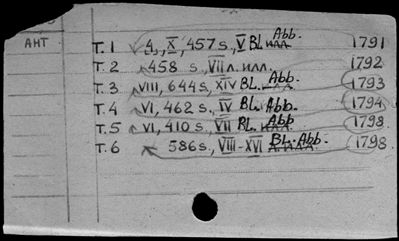 АНТ Т. 1 4, X, 457 s., V BL. Abb. 1791
Т. 2 458 s., VII л. илл. 1792
Т. 3 VIII, 644 s., XIV BL. Abb. 1793
Т. 4 VI, 462 s., IV BL. Abb. 1794
Т. 5 VI, 410 s., VII BL. Abb. 1798
Т. 6 586 s., VIII-XVI BL. Abb. 1798